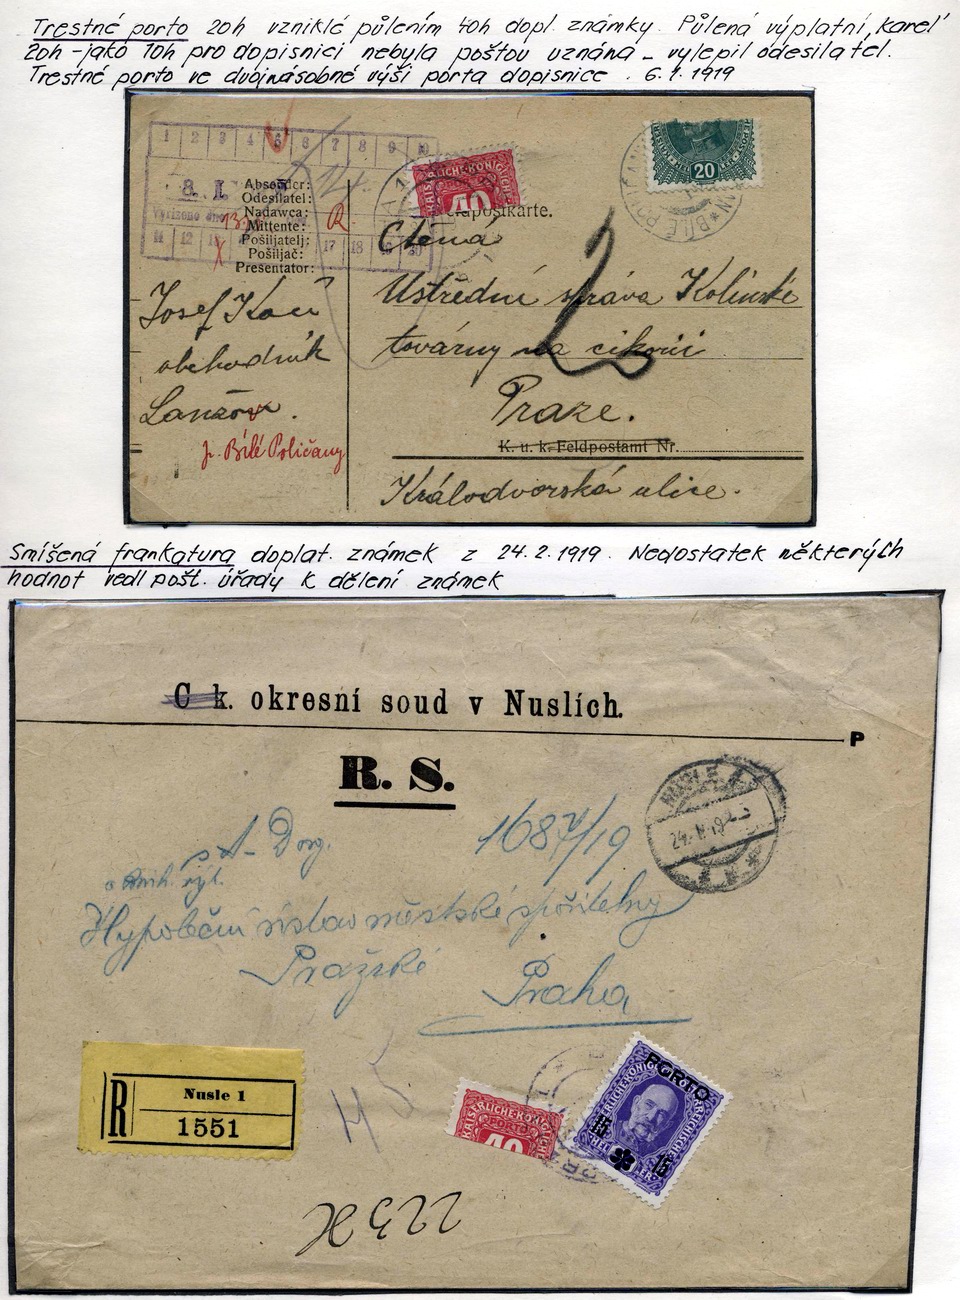 Trestné porto 20h vzniklé půlením 40h dopl. známky. Půlená výplatní, Karel
20h - jako 10h pro dopisnici nebyla poštou uznána - vylepil odesilatel.
Trestné porto ve dvojnásobné výši porta dopisnice . 6.1.1919
1 2 3 4 5 6 7 8 9 10
8. I.
Vyřízeno dne
11 12 17 18 19 20
Absender:
Odesílatel:
Nadawca:
Mittente:
Pošiljatelj:
Pošiljač:
Presentator:
R
KAISERLICHE KÖNIGLICHE
40
20
BÍLÉ POLIČANY
Feldpostkarte.
2
Josef Kocí
obchodník
Lanžov.
p. Bílé Poličany
Ctěná
Ústřední správa Kolínské
továrny na cikorii
Praze.
K. u. k. Feldpostamt Nr.
Králodvorská ulice.
Smíšená frankatura doplat. známek z 24.2.1919. Nedostatek některých
hodnot vedl pošt. úřady k dělení známek
C k. okresní soud v Nuslích.
P
R. S.
NUSLE
24. II 19
1687/19
Hypoteční ústav městské spořitelny
Pražské
Praha
R
Nusle 1
1551
45
KAISERLICHE KÖNIGLICHE
PORTO
40
PORTO
15 15
223